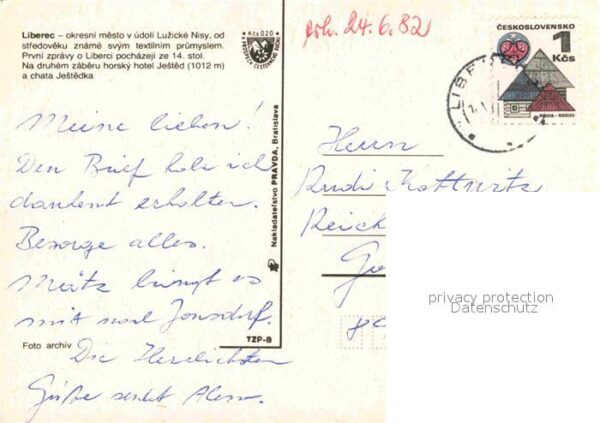 Liberec – okresní město v údolí Lužické Nisy, od
středověku známé svým textilním průmyslem.
První zprávy o Liberci pocházejí ze 14. stol.
Na druhém záběru horský hotel Ještěd (1012 m)
a chata Ještědka
Kčs 0,20
erh. 24.6.82
ČESKOSLOVENSKO
1
Kčs
LIBE
Meine lieben!
Den Brief habe ich
dankent erhalten.
Besorge alles.
bringt es
mit nach Jonsdorf.
Die Herzlichsten
Grüße sendet
Foto archiv
Nakladateľstvo PRAVDA, Bratislava
TZP-B
Herrn
Rudi Kottwitz
Reich
privacy protection
Datenschutz